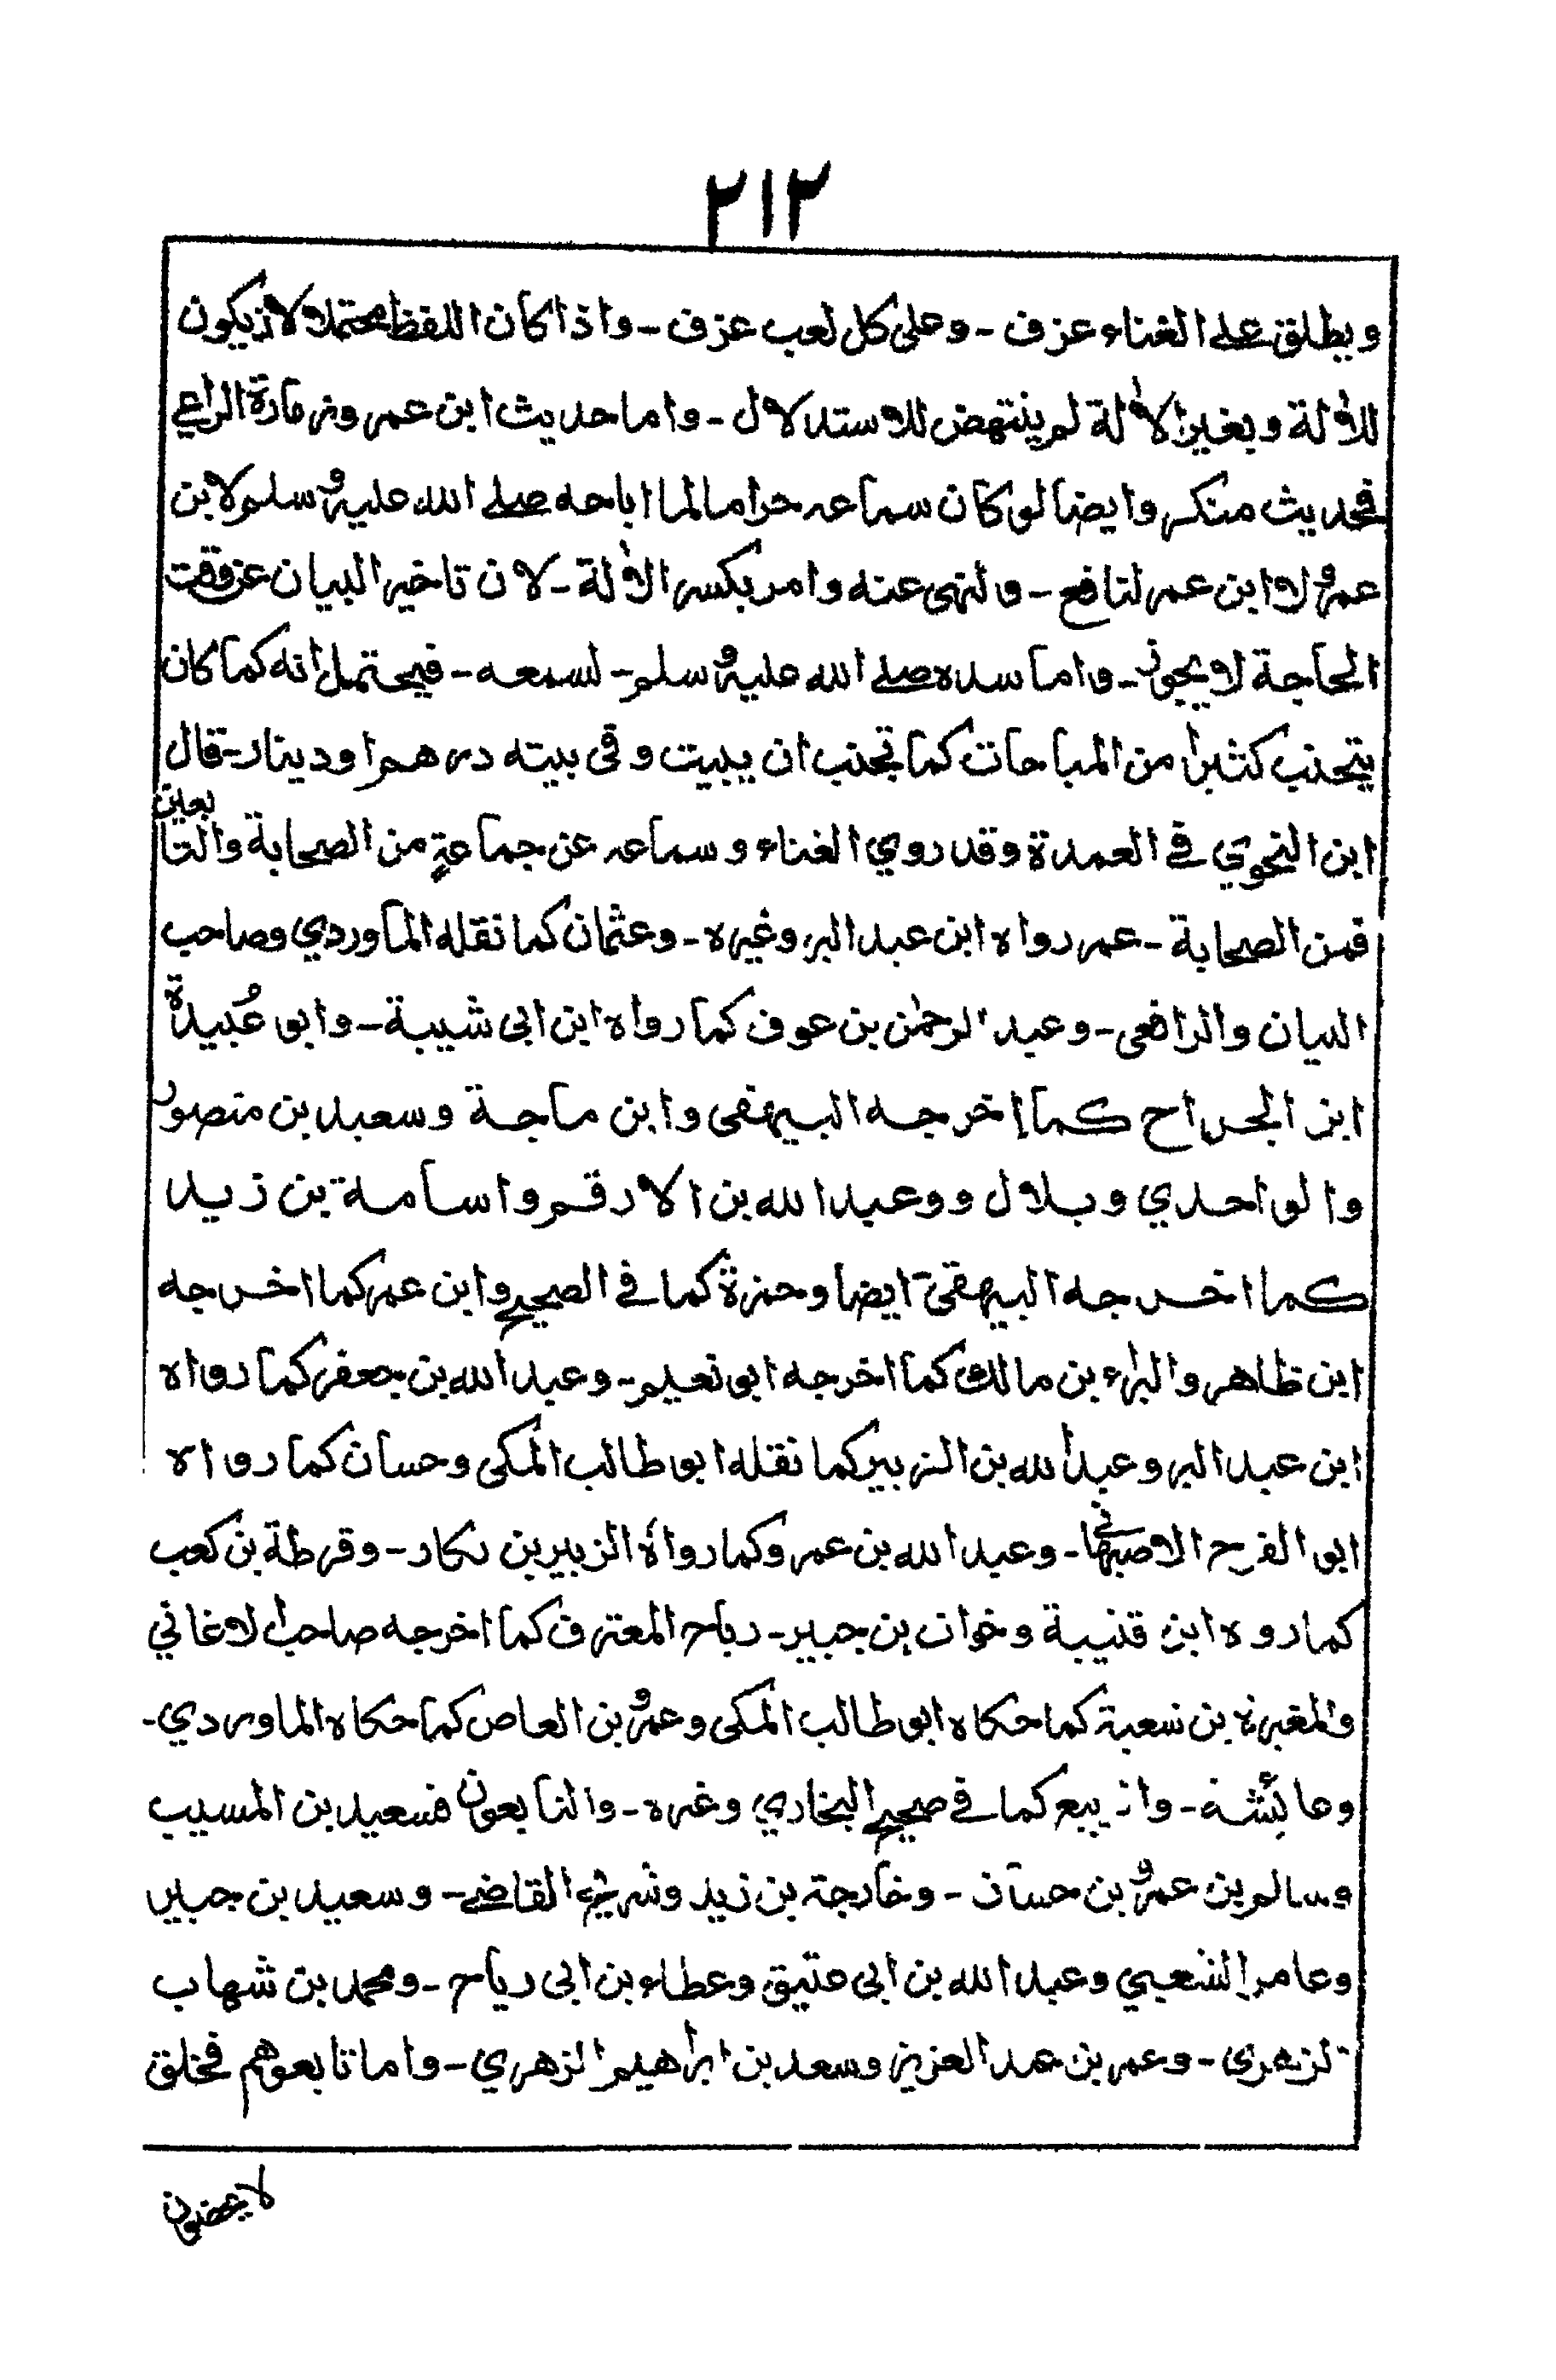 ٢١٢
ويطلق على الغناء عزف - وعلى كل لعب عزف - واذا كان اللفظ محتملا لان يكون
للالة وبغير الالة لم ينتهض للاستدلال - واما حديث ابن عمر وزمارة الراعي
فحديث منكر وايضا لو كان سماعه حراما لما اباحه صلى الله عليه وسلم لابن
عمر ولا ابن عمر لنافع - ولنهى عنه وامر بكسر الالة - لان تاخير البيان عن وقت
الحاجة لا يجوز - واما سده صلى الله عليه وسلم - لسمعه - فيحتمل انه كما كان
يتجنب كثيرا من المباحات كما تجنب ان يبيت وفى بيته درهم او دينار - قال
ابن النحوي في العمدة وقد روي الغناء وسماعه عن جماعة من الصحابة والتابعين
فمن الصحابة - عمر رواه ابن عبد البر وغيره - وعثمان كما نقله الماوردي وصاحب
البيان والرافعى - وعبد الرحمن بن عوف كما رواه ابن ابى شيبة - وابو عُبيدة
ابن الجراح كما اخرجه البيهقى وابن ماجة وسعيد بن منصور
والواحدي وبلال ووعبد الله بن الارقم واسامة بن زيد
كما اخرجه البيهقى ايضا وحمزة كما في الصحيح وابن عمر كما اخرجه
ابن طاهر والبراء بن مالك كما اخرجه ابو نعيم - وعبد الله بن جعفر كما رواه
ابن عبد البر وعبد الله بن الزبير كما نقله ابو طالب المكى وحسان كما رواه
ابو الفرح الاصبهاني - وعبد الله بن عمر وكما رواه الزبير بن بكار - وقرظة بن كعب
كما روه ابن قتيبة وخوات بن جبير - رباح المعترف كما اخرجه صاحب الاغاني
والمغيرة بن شعبة كما حكاه ابو طالب المكى وعمرو بن العاص كما حكاه الماوردي -
وعائشة - والربيع كما في صحيح البخاري وغيره - والتابعون فسعيد بن المسيب
وسالم بن عمرو بن حسان - وخارجة بن زيد وشريح القاضي - وسعيد بن جبير
وعامر الشعبي وعبد الله بن ابى عتيق وعطاء بن ابى رباح - ومحمد بن شهاب
الزهرى - وعمر بن عبد العزيز وسعد بن ابراهيم الزهري - واما تابعوهم فخلق
لا يحصون